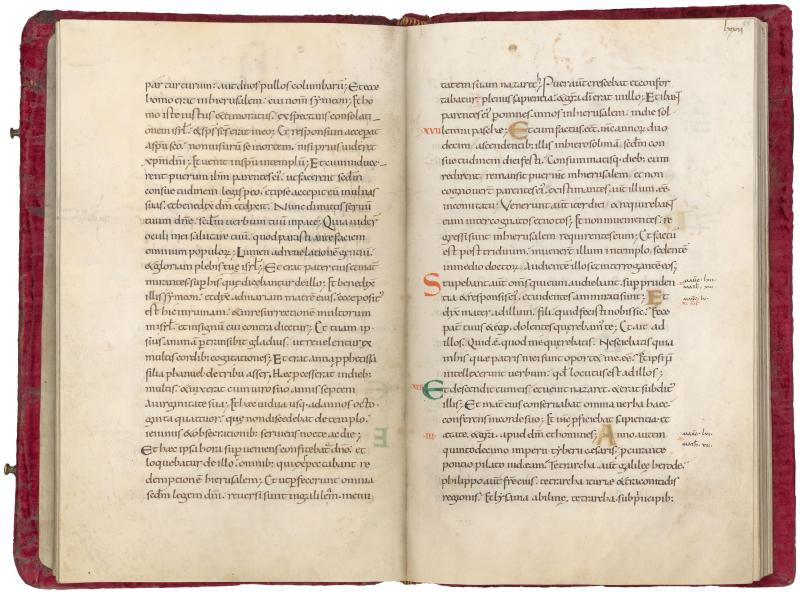 par turturum. aut duos pullos columbarū; Et ecce
homo erat in hierusalem. cui nom̄ symeon; Et ho
mo iste iustus & timoratus. expectans consolati
onem isrl̄. & sp̄s sc̄s erat in eo; Et responsum accepat
a spū sc̄o. non uisurum se mortem. nisi prius uideret
xp̄m dn̄i; Et uenit in spū in templū; Et cum induce
rent puerum ih̄m parentes ei'. ut facerent sed̄m
consuetudinem legis p eo. & ipse accepit eū in ulnas
suas. et benedix dm̄ et dixit. Nunc dimittis seruū
tuum dn̄e. sed̄m uerbum tuū in pace; Quia uider
oculi mei salutare tuū. quod parasti ante faciem
omnium populoꝝ; Lumen ad reuelationē gentiū.
& gloriam plebis tuę isrl̄; Et erat pater eius et mat
mirantes sup his que dicebantur de illo; Et benedix
illis symeon. et dix ad mariam matrē eius. ecce posit'
est hic in ruinam. & in resurrectionem multorum
in isrl̄. et in signū cui contradicetur; Et tuam ip
sius animā ptransibit gladius. ut reuelentur ex
multis cordib; cogitationes; Et erat anna pphetissa
filia phanuel. de tribu asser. Haec pcesserat in dieb;
multis. & uixerat cum uiro suo annis septem
a uirginitate sua; Et haec uidua usq; ad annos octo
ginta quattuor. quę non discedebat de templo.
ieiuniis & obsecrationib; seruiens nocte ac die;
Et haec ipsa hora superueniens confitebat dn̄o. et
loquebatur de illo. omnib; qui expectabant re
demptionē hierusalem; Et ut pfecerunt omnia
sed̄m legem dn̄i. reuersi sunt in galileā. in ciui
lxvii
tatem suam nazareth; Puer aut crescebat et confor
tabatur plenus sapientia. & gr̄a dī erat in illo; Et ibant
parentes ei' p omnes annos in hierusalem. in die sol
XVII lemni paschę; Et cum factus eēt. in c annoꝝ duo
decim. ascendentib; illis in hierosolimā. sed̄m con
suetudinem diei festi. Consummatisq; dieb; cum
redirent. remansit puer ih̄c in hierusalem. et non
cognouer parentes ei'. existimantes aut illum eē
in comitatu; Venerunt aut iter diei. & requirebant
eum inter cognatos et notos; Et non inuenientes. re
gressi sunt in hierusalem. requirentes eum; Et factū
est post triduum. inuener illum in templo. sedentē
in medio doctoꝝ. Audientē illos et interrogantē eos;
Stupebant aut oms qui eum audiebant. sup pruden
tia & responsis ei'. et uidentes ammirati sunt; Et
dix mater ad illum. fili. quid fecisti nobis sic; Ecce
pat tuus & ego. dolentes querebam' te; Et ait ad
illos. Quid ē quod me querebatis. Nesciebatis quia
in his que patris mei sunt oportet me eē. Et ipsi n̄
intellexerunt uerbum. qd locutus est ad illos;
VII Et descendit cum eis. et uenit nazareth. & erat subdit'
illis; Et mat eius conseruabat omnia uerba haec
conferens in corde suo; Et ih̄c pficiebat sapientia et
III etate. & gr̄a. apud dm̄ et homines; Anno autem
quintodecimo imperii tyberii caesaris. pcurante
pontio pilato iudaeam. Tetrarcha aut galileę herode.
philippo aut fr̄e eius. tetrarcha itureę & traconitidis
regionis. Et lysania abilinę tetrarcha. sub principib;